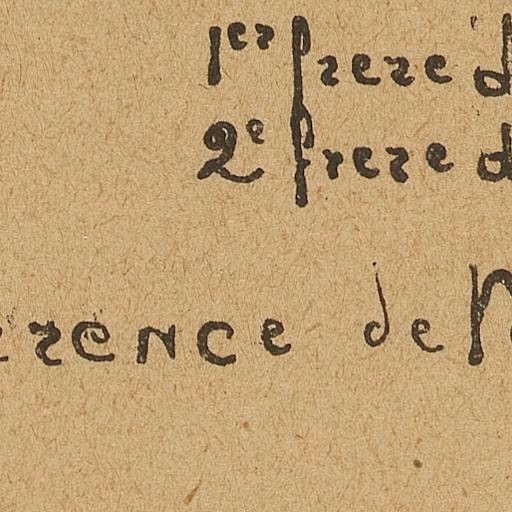 1er frere d
2e frere d
erence de